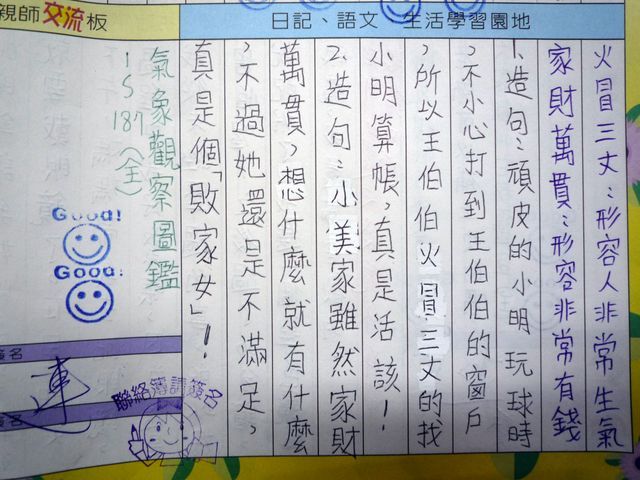 親師交流板
日記、語文 生活學習園地
火冒三丈:形容人非常生氣
家財萬貫:形容非常有錢
1.造句:頑皮的小明玩球時
,不小心打到王伯伯的窗戶
,所以王伯伯火冒三丈的找
小明算帳,真是活該!
2.造句:小美家雖然家財
萬貫,想什麼就有什麼
,不過她還是不滿足,
真是個「敗家女」!
氣象觀察圖鑑
1S187(全)
Good!
Good!
簽名
連
簽名
聯絡簿請簽名